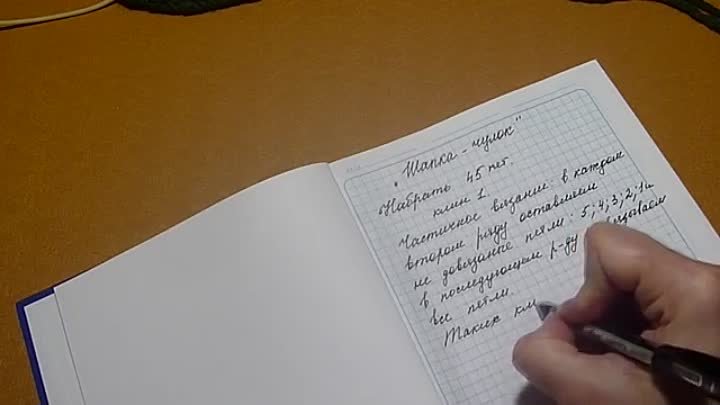 "Шапка-чулок"
Набрать 45 пет.
клин 1.
Частичное вязание: в каждом
втором ряду оставляем
не довязаные петли: 5; 4; 3; 2; 1 и
в последующем р-ду
все петли.
Таких кл